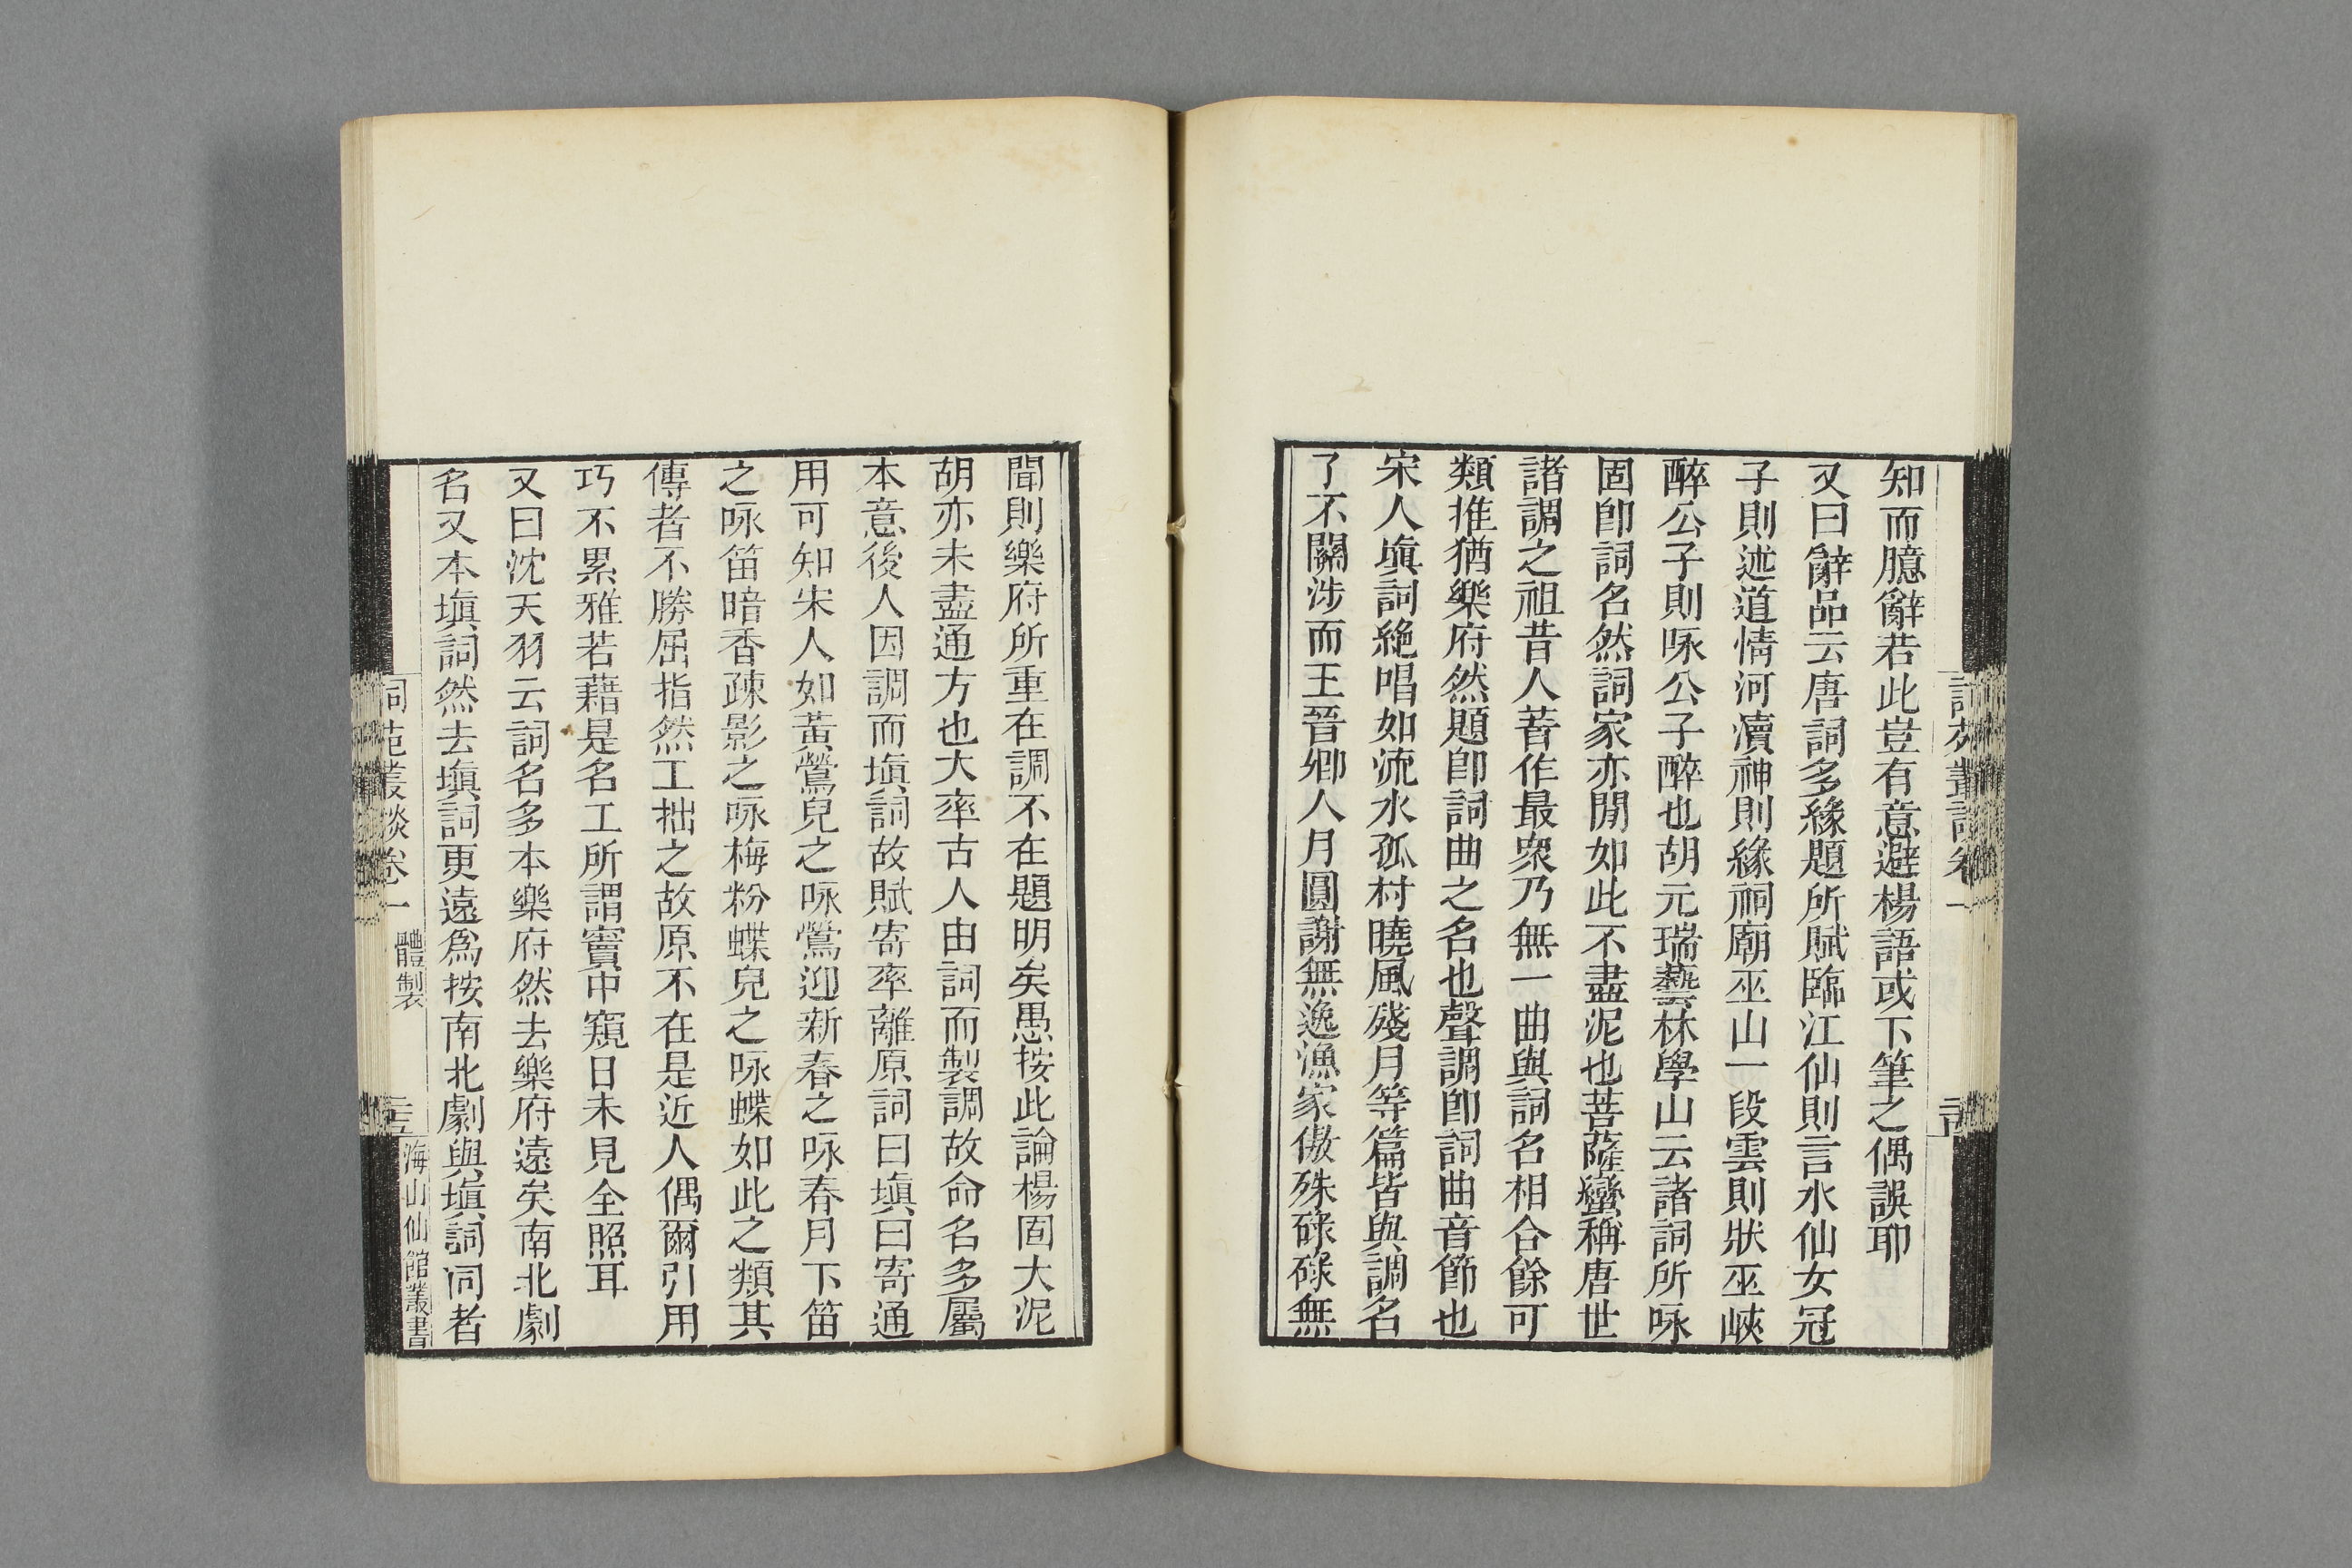 知而臆辭若此豈有意避楊語或下筆之偶誤耶
又曰辭品云唐詞多緣題所賦臨江仙則言水仙女冠
子則述道情河瀆神則緣祠廟巫山一段雲則狀巫峽
醉公子則咏公子醉也胡元瑞藝林學山云諸詞所咏
固卽詞名然詞家亦閒如此不盡泥也菩薩蠻稱唐世
諸調之祖昔人著作最衆乃無一曲與詞名相合餘可
類推猶樂府然題卽詞曲之名也聲調卽詞曲音節也
宋人塡詞絶唱如流水孤村曉風殘月等篇皆與調名
了不關涉而王晉卿人月圓謝無逸漁家傲殊碌碌無
聞則樂府所重在調不在題明矣愚按此論楊固大泥
胡亦未盡通方也大率古人由詞而製調故命名多屬
本意後人因調而塡詞故賦寄率離原詞曰塡曰寄通
用可知宋人如黃鶯兒之咏鶯迎新春之咏春月下笛
之咏笛暗香疎影之咏梅粉蝶兒之咏蝶如此之類其
傳者不勝屈指然工拙之故原不在是近人偶爾引用
巧不累雅若藉是名工所謂竇中窺日未見全照耳
又曰沈天羽云詞名多本樂府然去樂府遠矣南北劇
名又本塡詞然去塡詞更遠爲按南北劇與塡詞同者
詞苑叢談卷一
體製
海山仙館叢書